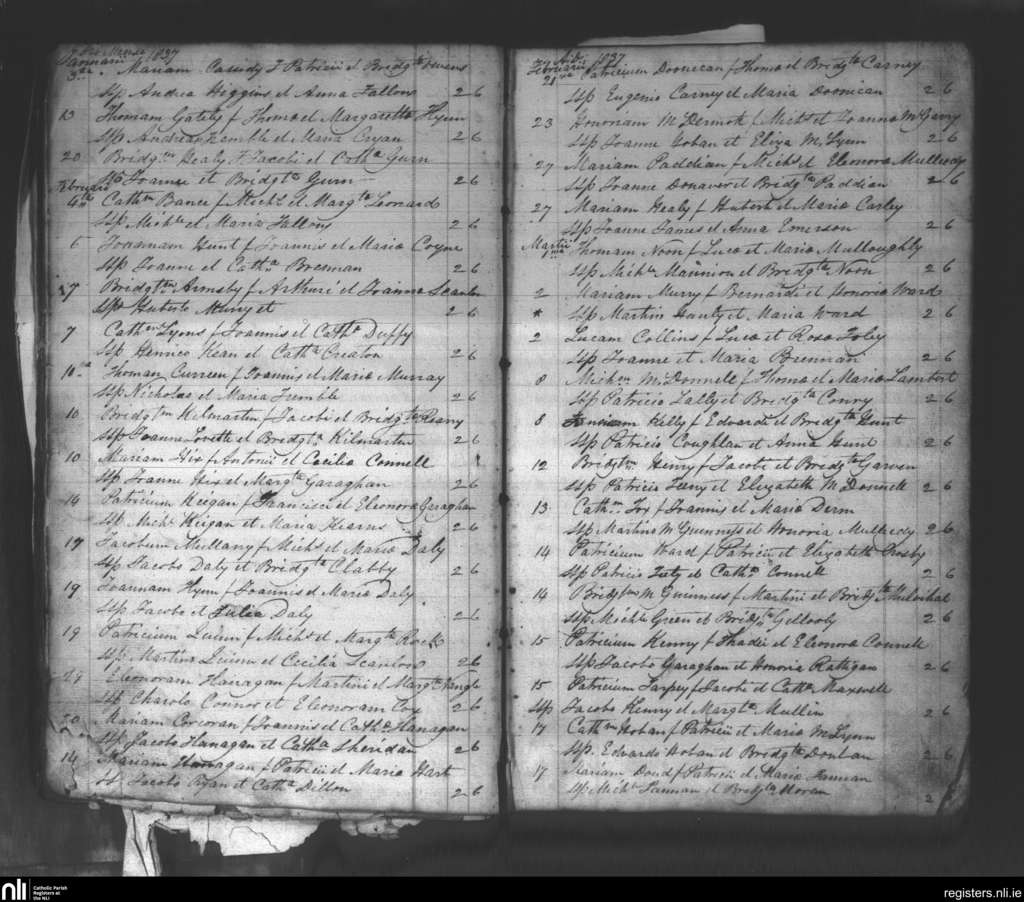 Januarii 1837
3 Mariam Cassidy f Patricii et Bridgtæ Owens
Ssp Andrea Higgins et Anna Fallons 2 6
13 Thomam Gately f Thoma et Margaretta Flynn
Ssp Andrea et Maria 2 6
20 Bridgm Healy f Jacobi et Cathа Gurn
Ssp Joanne et Bridgta Gurn 2 6
Februarii
4 Cathm f Michl et Margta Leonard
Ssp Michle et Maria Fallons 2 6
6 Joannam Hunt f Joannis et Maria Coyne
Ssp Joanne et Catha Bresman 2 6
17 Bridgtm Armsby f Arthuri et Joanna Scanlon
Ssp Huberto Murry et 2 6
7 Cathm Lyons f Joannis et Catha Duffy
Ssp Henrico Kean et Catha Creaton 2 6
10 Thomam Curreen f Joannis et Maria Murray
Ssp Nicholas et Maria Trumble 2 6
10 Bridgtm Kilmartin f Jacobi et Bridgta
Ssp Joanne et Bridgta Kilmartin 2 6
10 Mariam Hix f Antonii et Cecilia Connell
Ssp Joanne Hix et Margta Garaghan 2 6
14 Patricium Keigan f Francisci et Eleonora Garaghan
Ssp Michl Keigan et Maria Kearns 2 6
17 Jacobum Mullany f Michl et Maria Daly
Ssp Jacobo Daly et Bridgta Clabby 2 6
19 Joannam Flynn f Joannis et Maria Daly
Ssp Jacobo et Julia Daly 2 6
19 Patricium f Michl et Margta Rock
Ssp Martino et Cecilia Scanlon 2 6
Eleonoram Hanagan f Martini et Margta Nangle
Ssp Charolo Connor et Eleonoram Cox 2 6
20 Mariam Corcoran f Joannis et Catha Hanagan
Ssp Jacobo Hanagan et Catha Sheridan 2 6
14 Mariam Hanagan f Patricii et Maria Hart
Ss Jacobo Ryan et Catha Dillon 2 6
Februarii 1837
21 Patricium Doonican f Thoma et Bridgta Carney
Ssp Eugenio Carney et Maria Doonican 2 6
23 Honoriam McDermott f Michl et Joanna McGarry
Ssp Joanne Hoban et Eliza McLynn 2 6
27 Mariam Paddian f Michl et Eleonora Mulledy
Ssp Joanne et Bridgta Paddian 2 6
27 Mariam Healy f Huberti et Maria Carley
Ssp Joanne James et Anna Emerson 2 6
Martii
1 Thomam Noon f Luca et Maria Mulloughly
Ssp Michle Mannion et Bridgta Noon 2 6
2 Mariam Murry f Bernardi et Honoria Ward
* Ssp Martino Hanty et Maria Ward 2 6
2 Lucam Collins f Luca et Rosa Foley
Ssp Joanne et Maria Brennan 2 6
8 Michm McDonnell f Thoma et Maria Lambert
Ssp Patricio Lally et Bridgta Conry 2 6
8 Kelly f Edvardi et Bridgta Hunt
Ssp Patricio Coughlan et Anna Hunt 2 6
12 Bridgtm Henry f Jacobi et Bridgta Garven
Ssp Patricio Feeny et Elizabeth McDonnell 2 6
13 Cathm Fox f Joannis et Maria Derm
Ssp Martino McGuinness et Honoria Mulledy 2 6
14 Patricium Ward f Patricii et Elizabeth Crosby
Ssp Patricio et Catha Connell 2 6
14 Bridgtm McGuinness f Martini et Bridgta Mulvihal
Ssp Michle Green et Bridgta Gellooly 2 6
15 Patricium Kenny f Thadei et Eleonora Connell
Ssp Jacobo Garaghan et Honoria Rattigan 2 6
15 Patricium Tarpey f Jacobi et Catha Maxwell
Ssp Jacobo Kenny et Margta Mullin 2 6
17 Cathm Hoban f Patricii et Maria McLynn
Ssp. Edvardo Hoban et Bridgta Doulan 2 6
17 Mariam Doud f Patricii et Maria Hannan
Ssp Michle Hannan et Bridgta Moran 2
nli Catholic Parish
Registers at
the NLI
registers.nli.ie